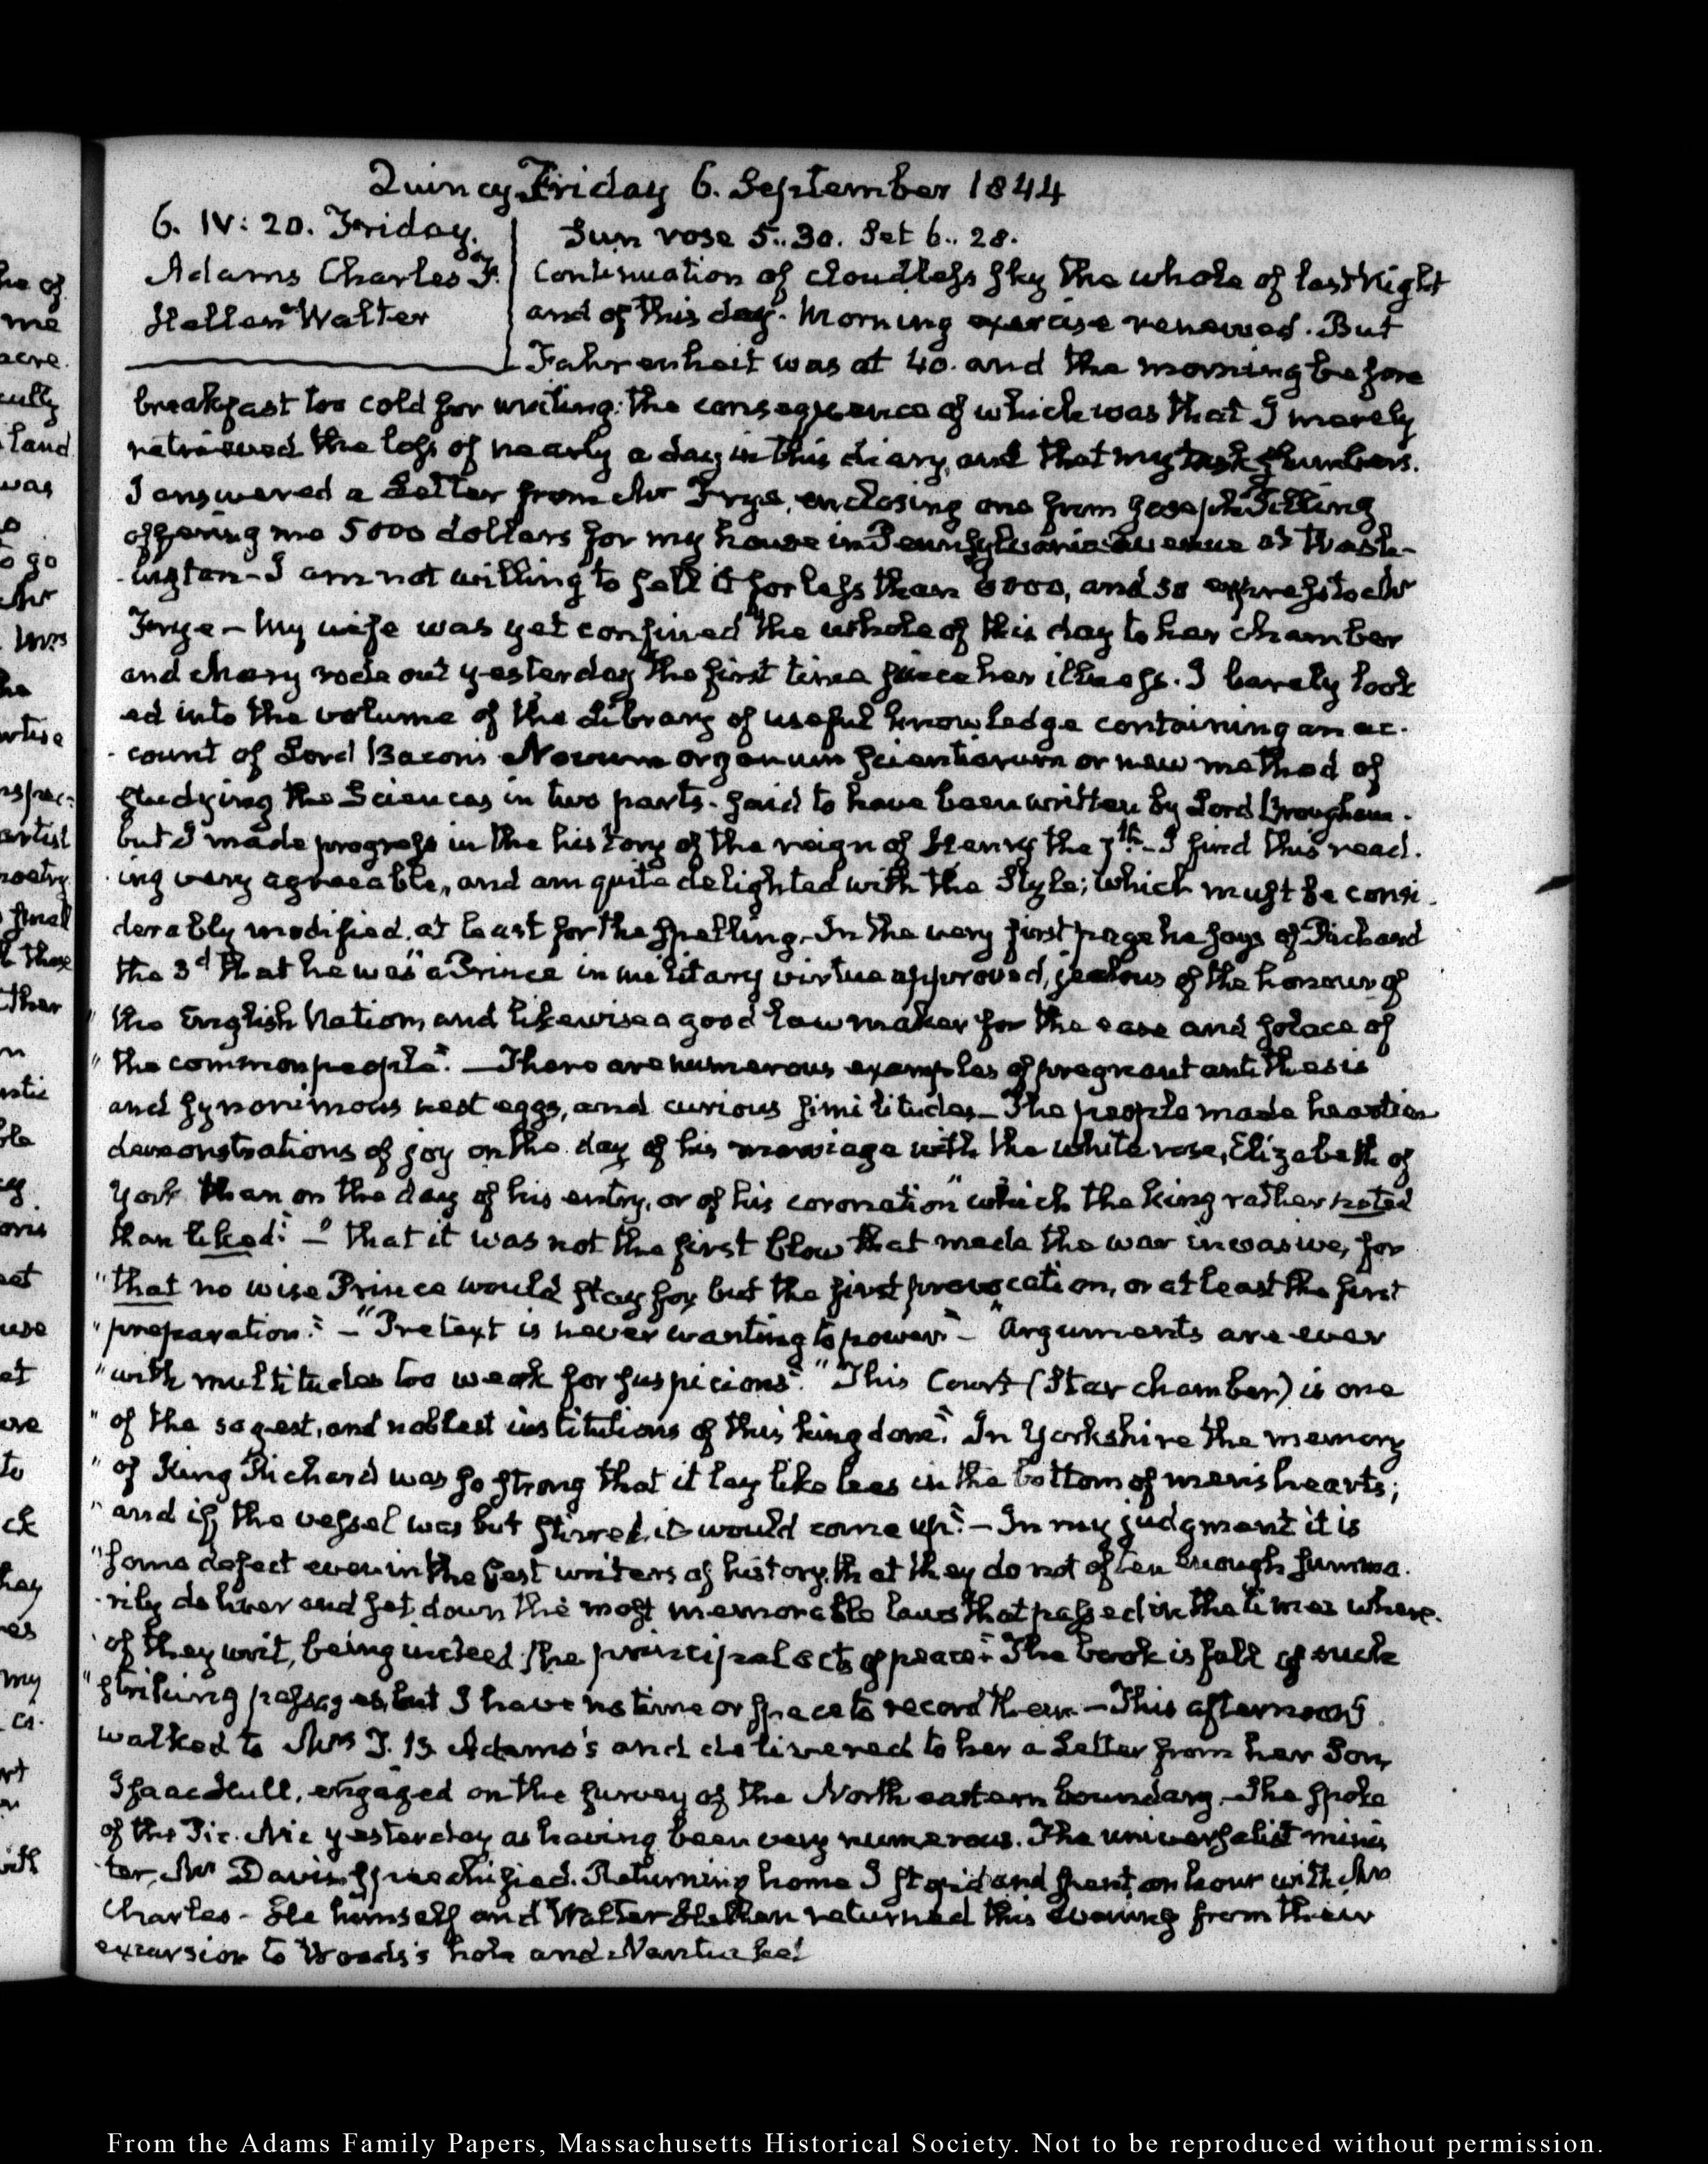 Quincy Friday 6. September 1844
6. IV: 20. Friday.
Adams Charles F.
Hellen Walter
Sun rose 5..30. Set 6.. 28.
Continuation of cloudless sky the whole of last Night
and of this day. Morning exercise renewed. But
Fahrenheit was at 40. and the morning before
breakfast too cold for writing: the consequence of which was that I merely
retrieved the loss of nearly a day in this diary, and that my task slumbers.
I answered a Letter from Mr Frye, enclosing one from Joseph
offering me 5000 dollars for my house in Pennsylvania Avenue at Wash-
-ington - I am not willing to sell it for less than 6000, and so express to Mr
Frye - My wife was yet confined the whole of this day to her chamber
and Mary rode out yesterday the first time since her illness. I barely look
ed into the volume of the Library of useful knowledge containing an ac-
-count of Lord Bacon's Novum organum Scientiarum or new method of
studying the Sciences in two parts. said to have been written by Lord Brougham.
but I made progress in the history of the reign of Henry the 7th - I find this read-
-ing very agreeable, and am quite delighted with the Style; which must be consi-
derably modified, at least for the spelling. In the very first page he says of Richard
the 3d that he was "a Prince in military virtue approved, jealous of the honour of
" the English Nation, and likewise a good law maker for the ease and solace of
" the common people". - There are numerous examples of pregnant antithesis
and synonimous nest eggs, and curious similitudes - The people made heartier
demonstrations of joy on the day of his marriage with the white rose, Elizabeth of
York than on the day of his entry, or of his coronation "which the king rather noted
than liked" - " that it was not the first blow that made the war invasive, for
" that no wise Prince would stay for but the first provocation, or at least the first
" preparation." - "Pretext is never wanting to power" - "Arguments are ever
" with multitudes too weak for suspicions". "This Court (Star chamber) is one
" of the sagest, and noblest institutions of this kingdom". In Yorkshire the memory
" of King Richard was so strong that it lay like lees in the bottom of men's hearts;
" and if the vessel was but stirred, it would come up". - In my judgment it is
" some defect even in the best writers of history, that they do not often enough summa-
-rily deliver and set down the most memorable laws that passed in the times where-
-of they writ, being indeed the principal acts of peace". The book is full of such
" striking passages, but I have no time or space to record them. - This afternoon I
walked to Mrs T. B. Adams's and delivered to her a Letter from her Son,
Isaac Hull, engaged on the survey of the North eastern boundary. She spoke
of the Pic. Nic yesterday as having been very numerous. The universalist minis
ter, Mr Davis speechified. Returning home I stop'd and spent an hour with Mrs
Charles - He himself and Walter Hellen returned this evening from their
excursion to Woods's hole and Nantucket
From the Adams Family Papers, Massachusetts Historical Society. Not to be reproduced without permission.